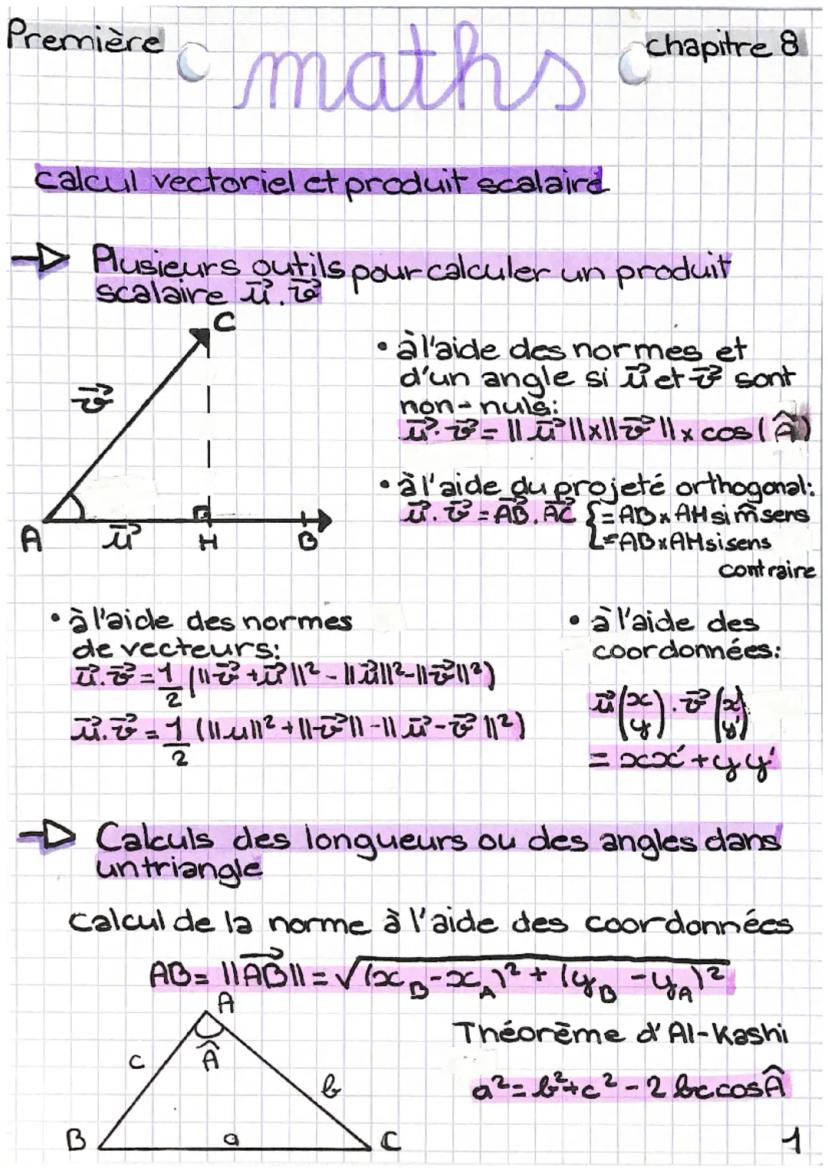 Première
maths
chapitre 8
calcul vectoriel et produit scalaire
Plusieurs outils pour calculer un produit
scalaire u⃗.v⃗
C
v⃗
A
u⃗
H
B
• à l'aide des normes et
d'un angle si u⃗ et v⃗ sont
non-nuls:
u⃗.v⃗ = ||u⃗||x||v⃗||x cos(Â)
• à l'aide du projeté orthogonal:
u⃗.v⃗ = AB⃗.AC⃗ {=AB x AH si m̂ sens
=AB x AH si sens
contraire
• à l'aide des normes
de vecteurs:
u⃗.v⃗ = 1/2 (||v⃗+u⃗||² - ||u⃗||² - ||v⃗||²)
u⃗.v⃗ = 1/2 (||u||² + ||v⃗|| - ||u⃗-v⃗||²)
• à l'aide des
coordonnées:
u⃗(x y).v⃗(x' y')
= xx' + yy'
Calculs des longueurs ou des angles dans
un triangle
calcul de la norme à l'aide des coordonnées
AB = ||AB⃗|| = √(x_B - x_A)² + (y_B - y_A)²
A
Â
c
b
B
a
C
Théorème d'Al-Kashi
a² = b² + c² - 2 bc cos Â
1